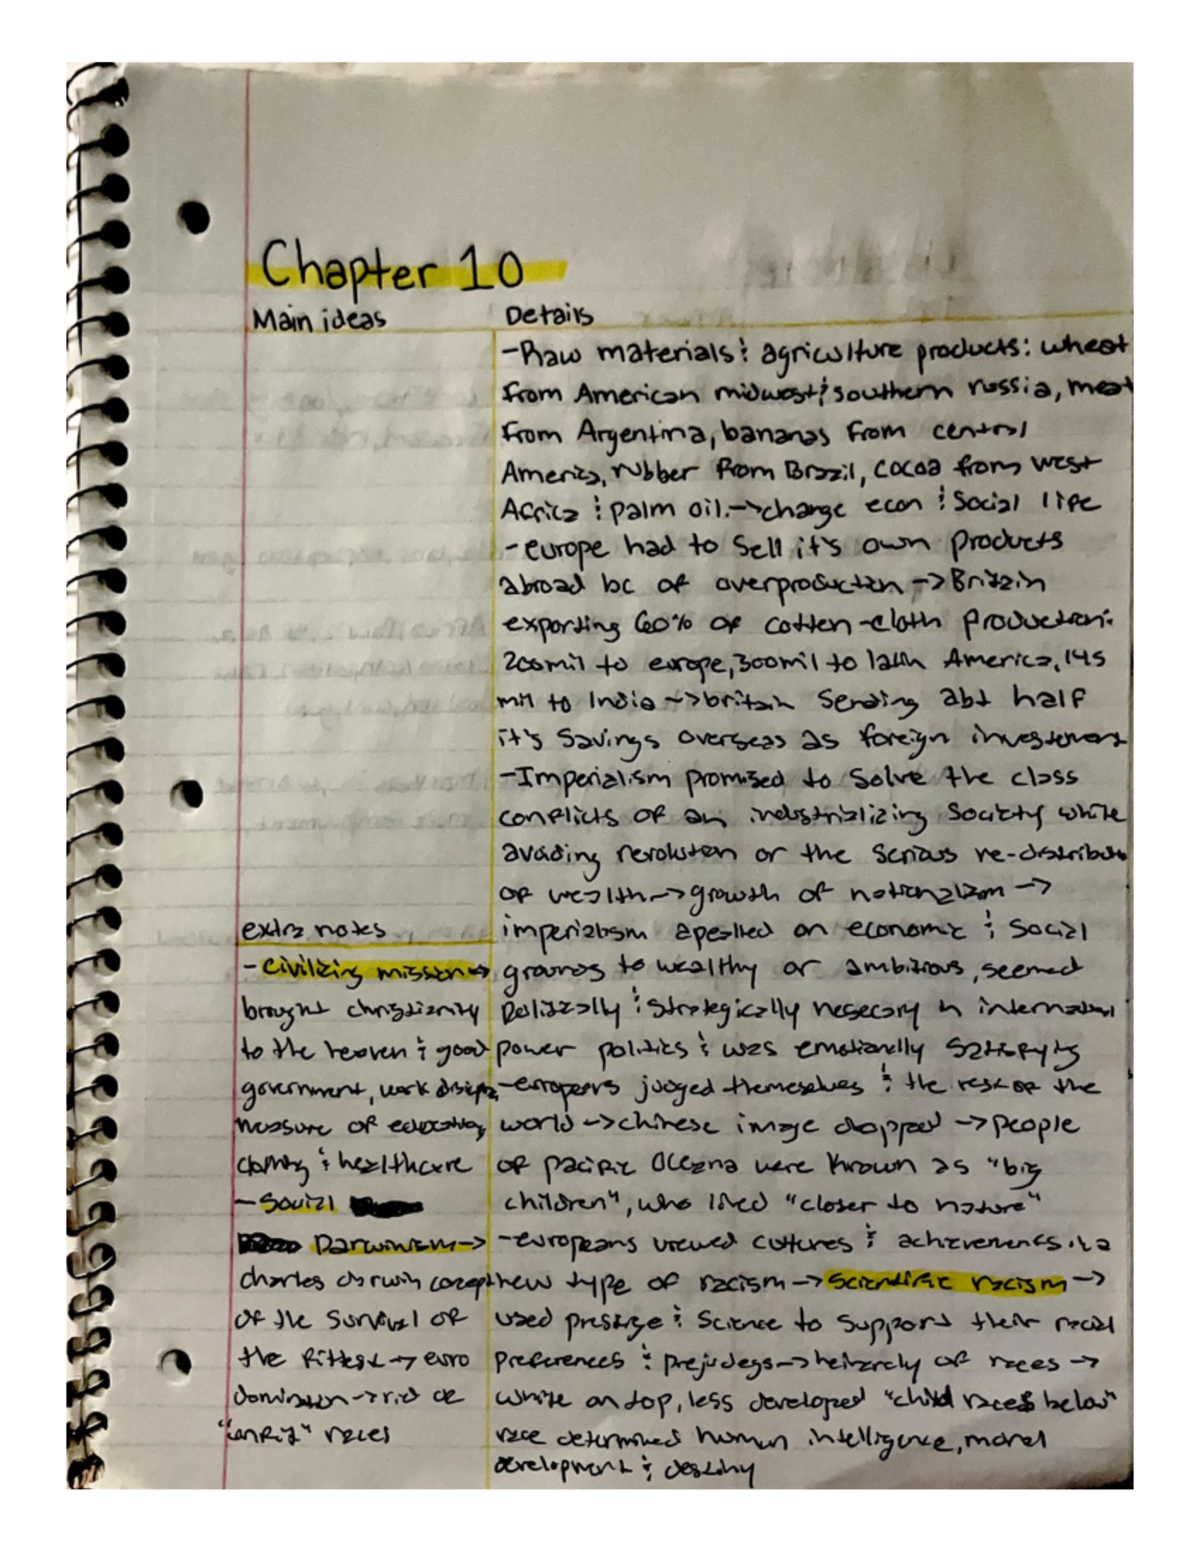 Chapter 10
Main ideas
Details
-Raw materials & agriculture products: wheat
from American midwest & southern russia, meat
from Argentina, bananas from central
America, rubber from Brazil, cocoa from west
Africa & palm oil. -> change econ & social life
-europe had to sell it's own products
abroad bc of overproduction -> Britain
exporting 60% of cotten-cloth production:
200mil to europe, 300mil to latin America, 145
mil to India -> britain sending abt half
it's savings overseas as foreign
-Imperialism promised to solve the class
conflicts of an industrializing society while
avoiding revolution or the serious re-distribution
of wealth -> growth of nationalism ->
imperialism on economic & social
grounds to wealthy or ambitious, seemed
politically & strategically in international
power politics & was emotionally
-europeans judged & the rest of the
world -> chinese image dropped -> people
of pacific were known as "big
children", who lived "closer to nature"
-europeans viewed cultures & achievements
new type of racism -> scientific racism ->
used prestige & science to support their racial
preferences & -> of races ->
white on top, less developed "child races below"
race determined human intelligence, moral
development & destiny
extra notes
-civilizing mission ->
brought christianity
to the & good
government, work
measure of education,
clothing & healthcare
-Social
Darwinism ->
charles darwin concept
of the survival of
the fittest -> euro
-> rid of
"unfit" races